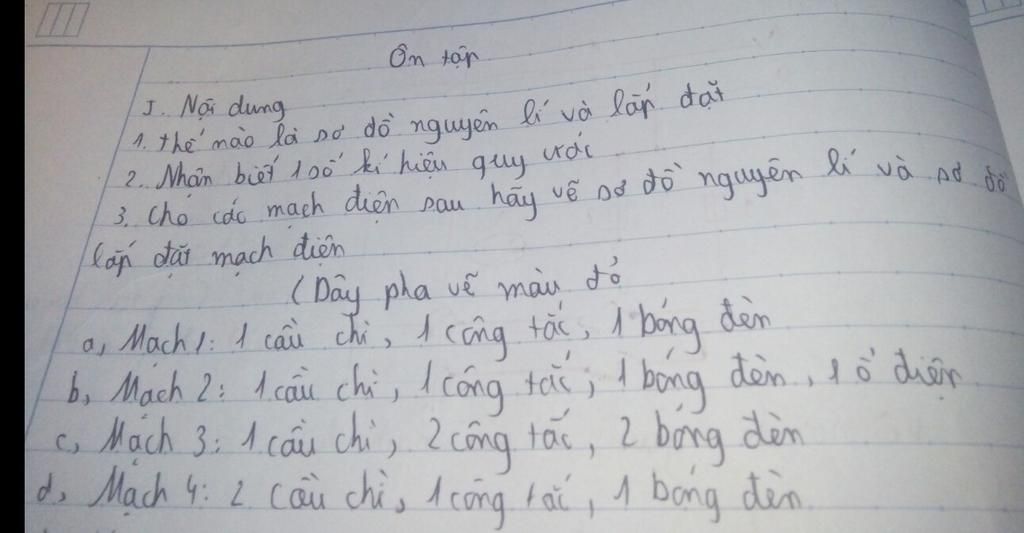 Ôn tập
I. Nội dung
1. thế nào là sơ đồ nguyên lí và lắp đặt
2. Nhận biết 1 số kí hiệu quy ước
3. Cho các mạch điện sau hãy vẽ sơ đồ nguyên lí và sơ đồ
lắp đặt mạch điện
(Dây pha vẽ màu đỏ
a, Mạch 1: 1 cầu chì, 1 công tắc, 1 bóng đèn
b, Mạch 2: 1 cầu chì, 1 công tắc, 1 bóng đèn, 1 ổ điện
c, Mạch 3: 1 cầu chì, 2 công tắc, 2 bóng đèn
d, Mạch 4: 2 cầu chì, 1 công tắc, 1 bóng đèn